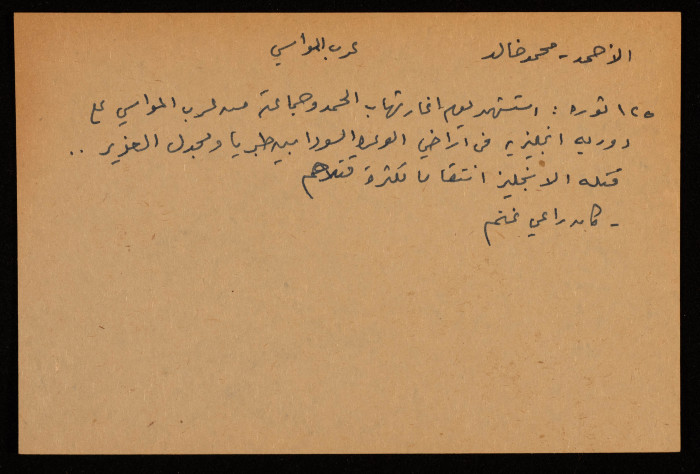 الأحمد - محمود خالد عرب المواسي
١٢٥ ثوره : استشهد يوم اغار تهاب الحمد وجماعة من عرب المواسي على
دوريه انجليزيه في أراضي الوعره السودا بين طبريا ومجدل العزيز ..
قتله الانجليز انتقاما لكثرة قتلاهم
- كان راعي غنم